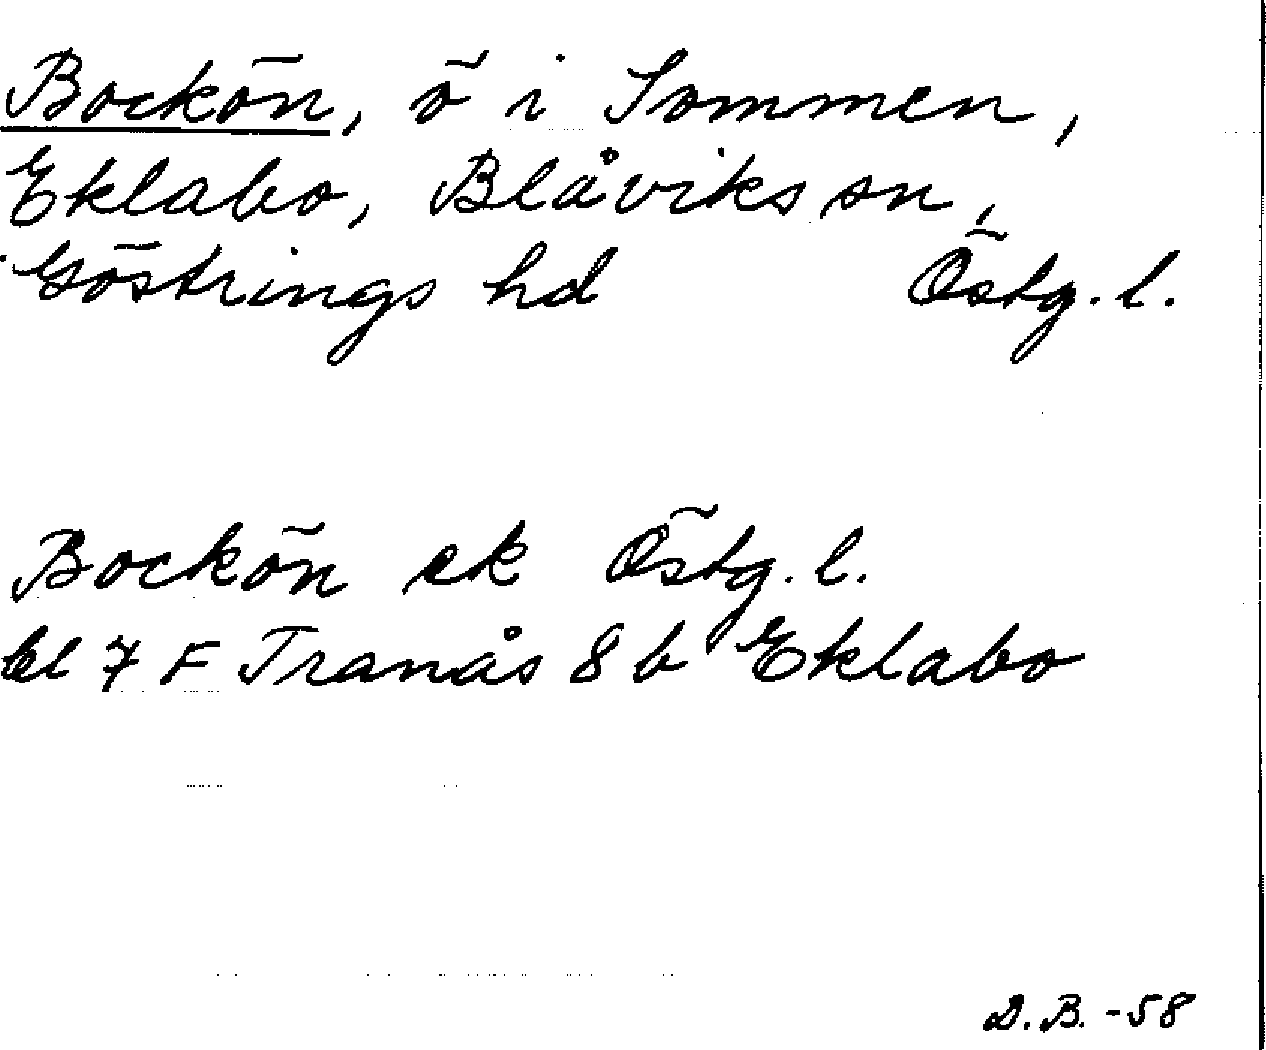 Bockön, ö i Sommen,
Eklabo, Blåviks sn,
Göstrings hd Östg. l.
Bockön ek Östg. l.
bl 7 F Tranås 8 b Eklabo
D.B. -58